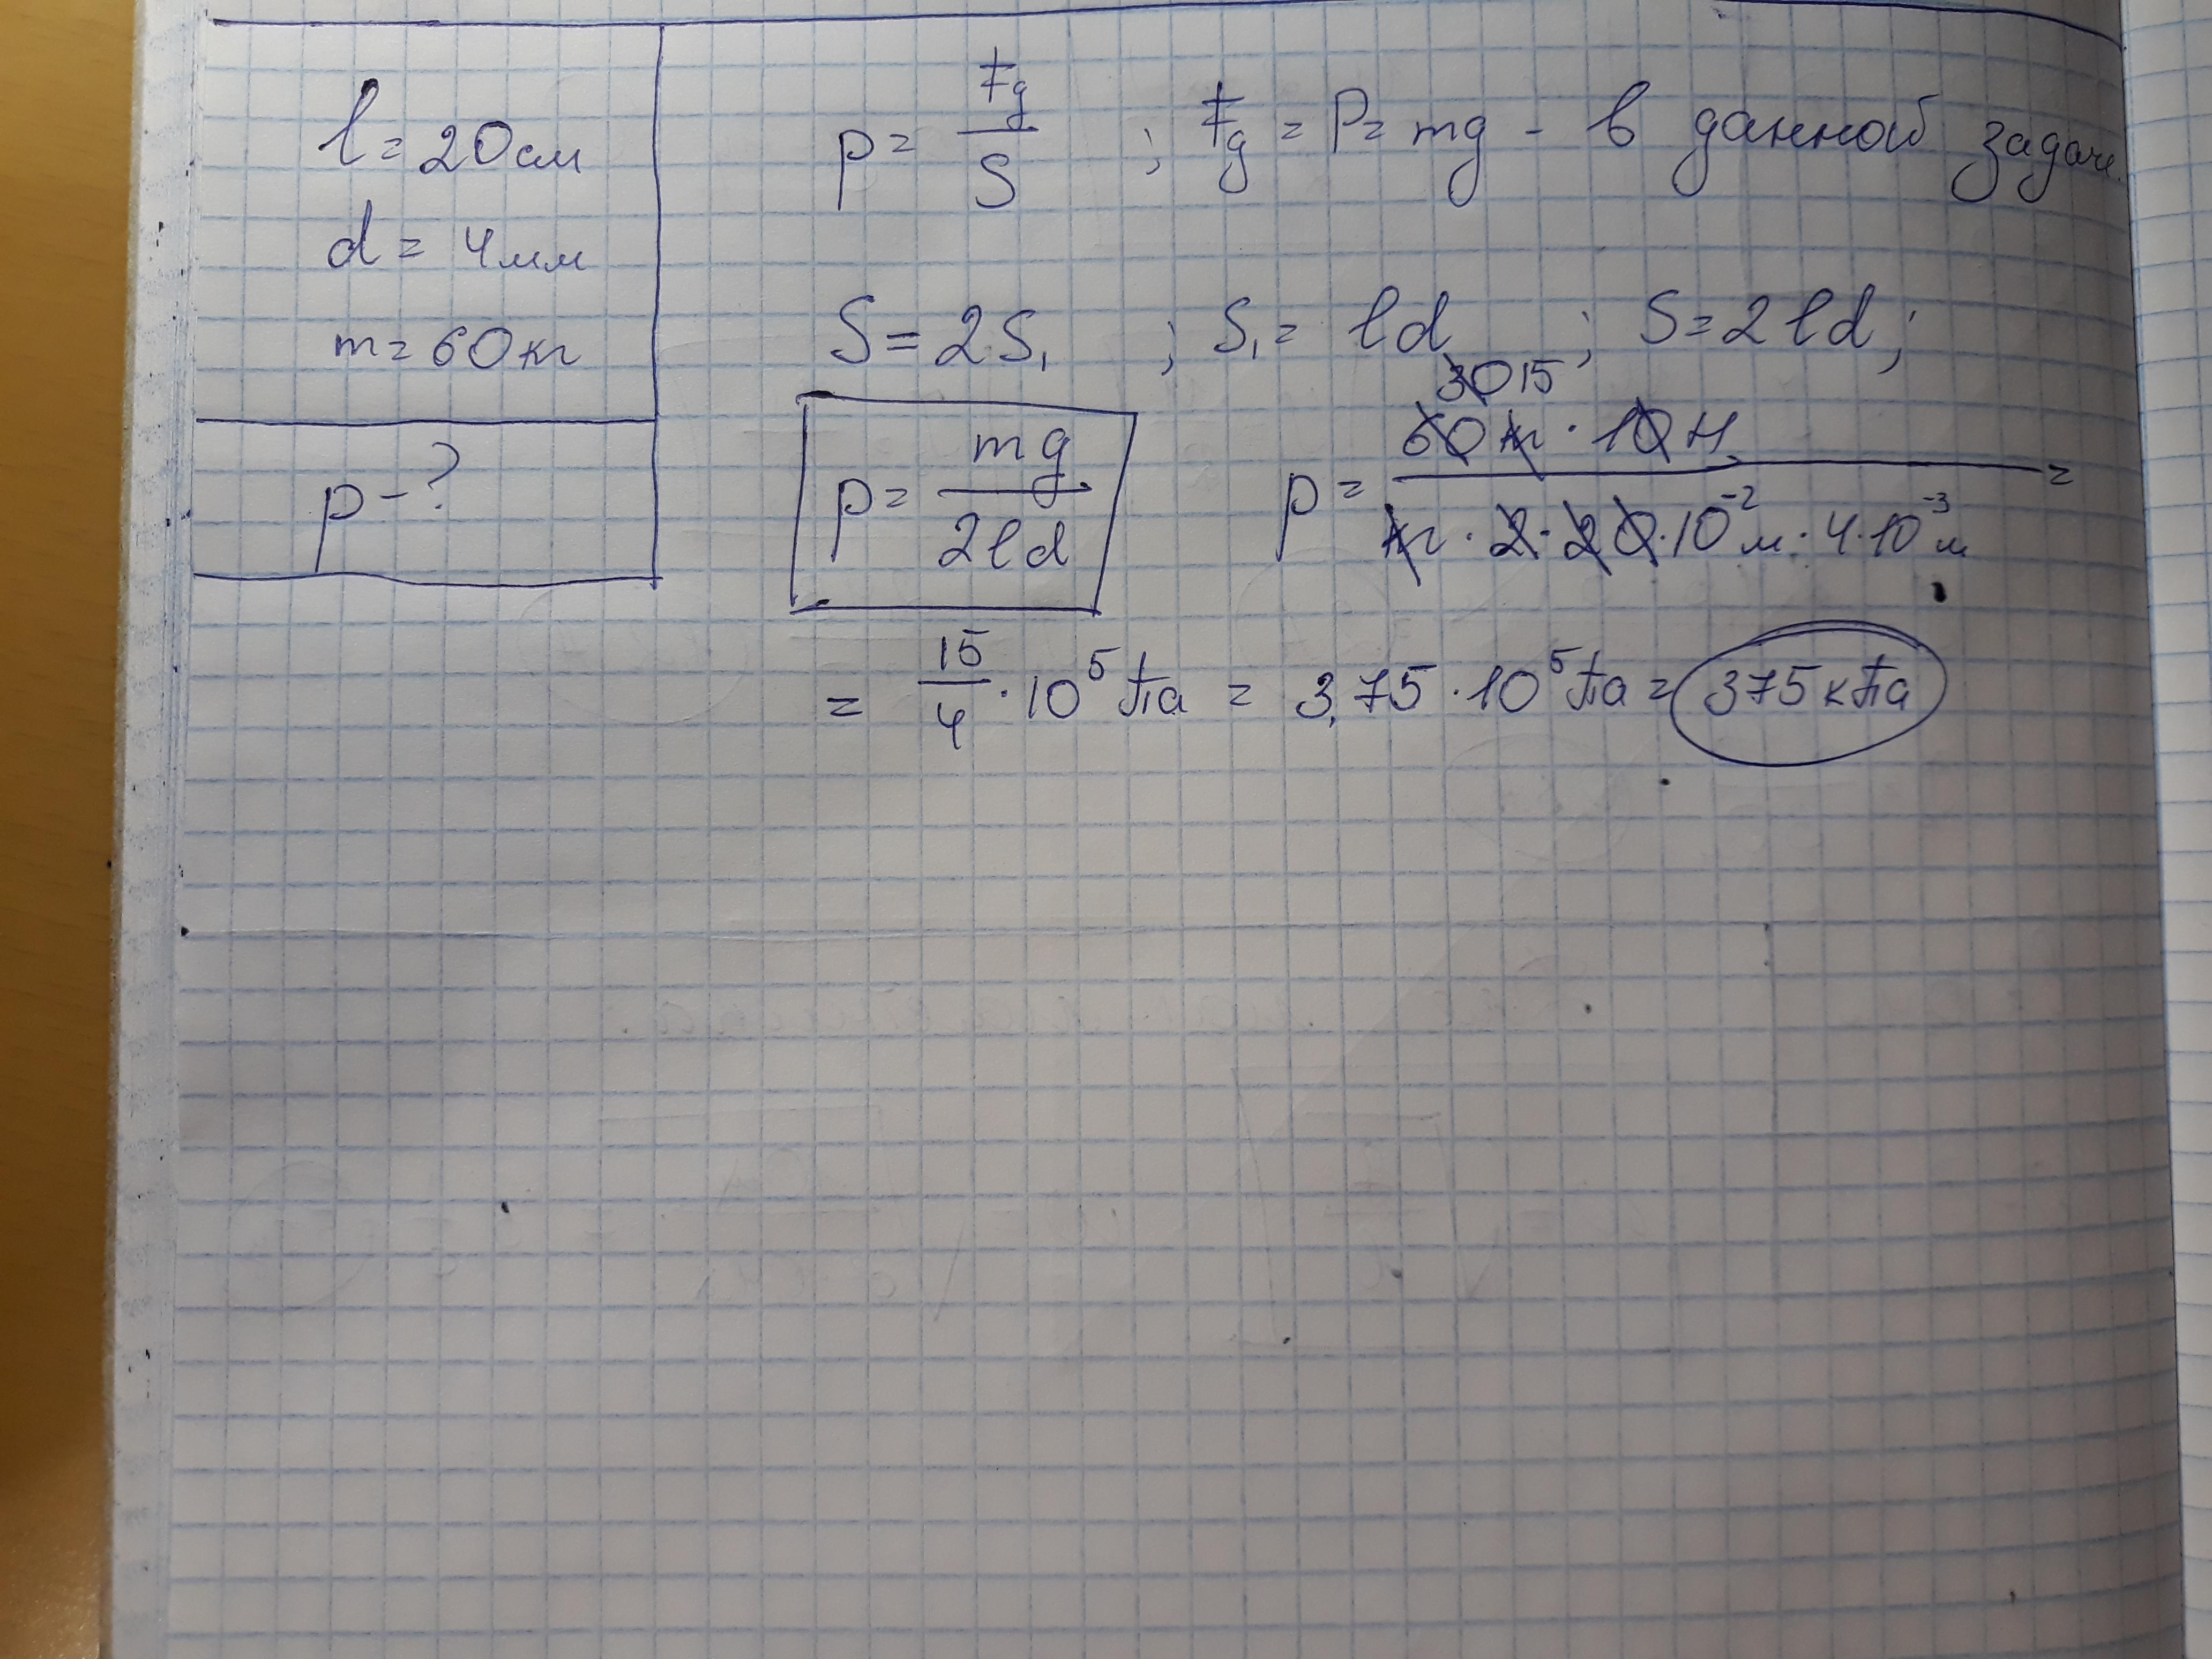 l = 20 см
d = 4 мм
m = 60 кг
p - ?
p = Fg / S ; Fg = P = mg - в данной задаче.
S = 2S₁ ; S₁ = ld ; S = 2ld ;
30 15
p = mg / 2ld p = 60 кг · 10 Н / кг · 2 · 20 · 10⁻² м · 4 · 10⁻³ м =
= 15/4 · 10⁵ Па = 3,75 · 10⁵ Па = 375 кПа